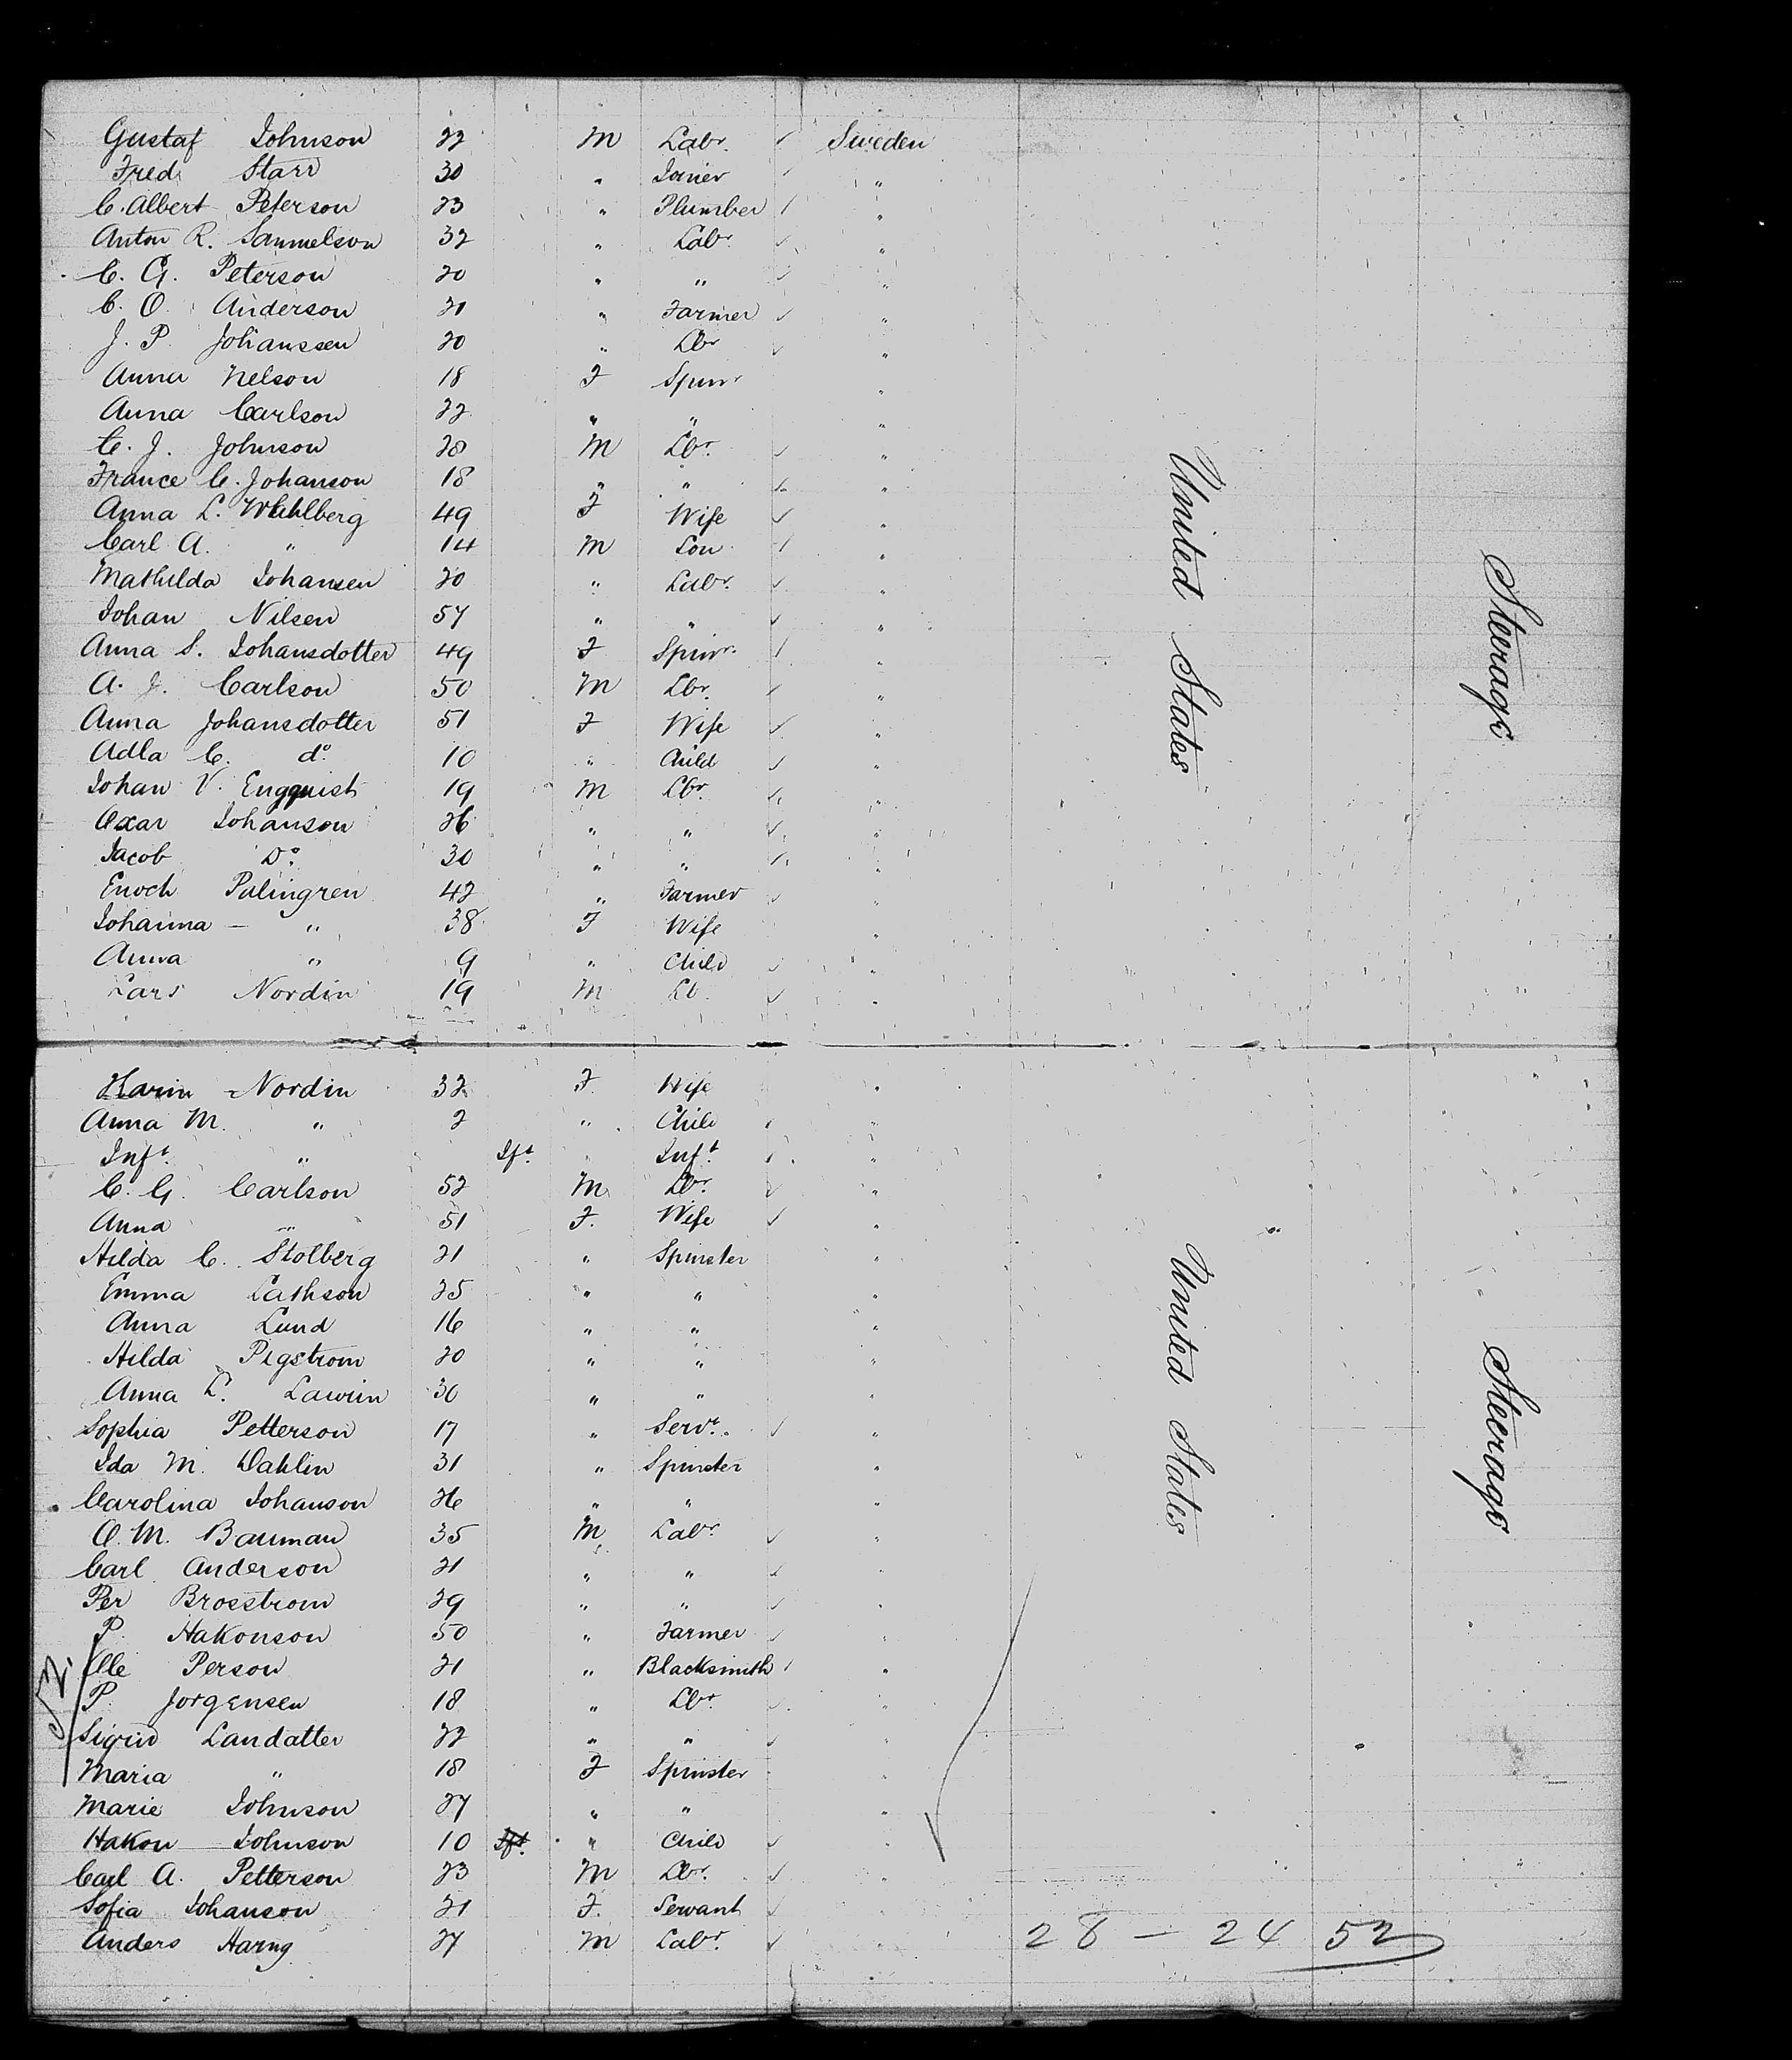 Gustaf Johnson 22 M Labr. Sweden
Fredk Starr 30 " Joiner "
C. Albert Peterson 23 " Plumber "
Anton R. Sammelson 32 " Labr. "
C. G. Peterson 20 " " "
C. O. Anderson 21 " Farmer "
J. P. Johanssen 20 " Lbr "
Anna Nelson 18 F Spinr "
Anna Carlson 22 " " "
C. J. Johnson 28 M Lbr. "
France C. Johanson 18 " " "
Anna L. Wahlberg 49 F Wife "
Carl A. " 14 M Son "
Mathilda Johansen 20 " Labr. "
Johan Nilsen 57 " " "
Anna S. Johansdotter 49 F Spinr. "
A. J. Carlson 50 M Lbr. "
Anna Johansdotter 51 F Wife "
Adla C. do. 10 " Child "
Johan V. Engquist 19 M Lbr. "
Oxar Johanson 26 " " "
Jacob Do. 30 " " "
Enoch Palingren 42 " Farmer "
Johanna — " 38 F Wife "
Anna " 9 " Child "
Lars Nordin 19 M Lb. "
United States
Steerage
Karin Nordin 32 F. Wife "
Anna M. " 2 " Child "
Inft. " Ift. Inft. "
C. G. Carlson 52 M Lbr. "
Anna " 51 F. Wife "
Hilda C. Stolberg 21 " Spinster "
Emma Cathson 25 " " "
Anna Lund 16 " " "
Hilda Pigstrom 20 " " "
Anna L. Lawrin 30 " " "
Sophia Petterson 17 " Servt. "
Ida M. Dahlin 31 " Spinster "
Carolina Johanson 26 " " "
O. M. Bauman 35 M Labr. "
Carl Anderson 21 " " "
Per Brosstrom 29 " " "
P. Hakonson 50 " Farmer "
Olle Person 21 " Blacksmith "
P. Jorgensen 18 " Lbr "
Sigrid Landatter 22 " " "
Maria " 18 F Spinster "
Marie Johnson 27 " " "
Hakon Johnson 10 Ift. " Child "
Carl A. Petterson 23 M Lbr. "
Sofia Johanson 21 F. Servant "
Anders Harng 27 M Labr. "
United States
Steerage
52.
28 — 24 52